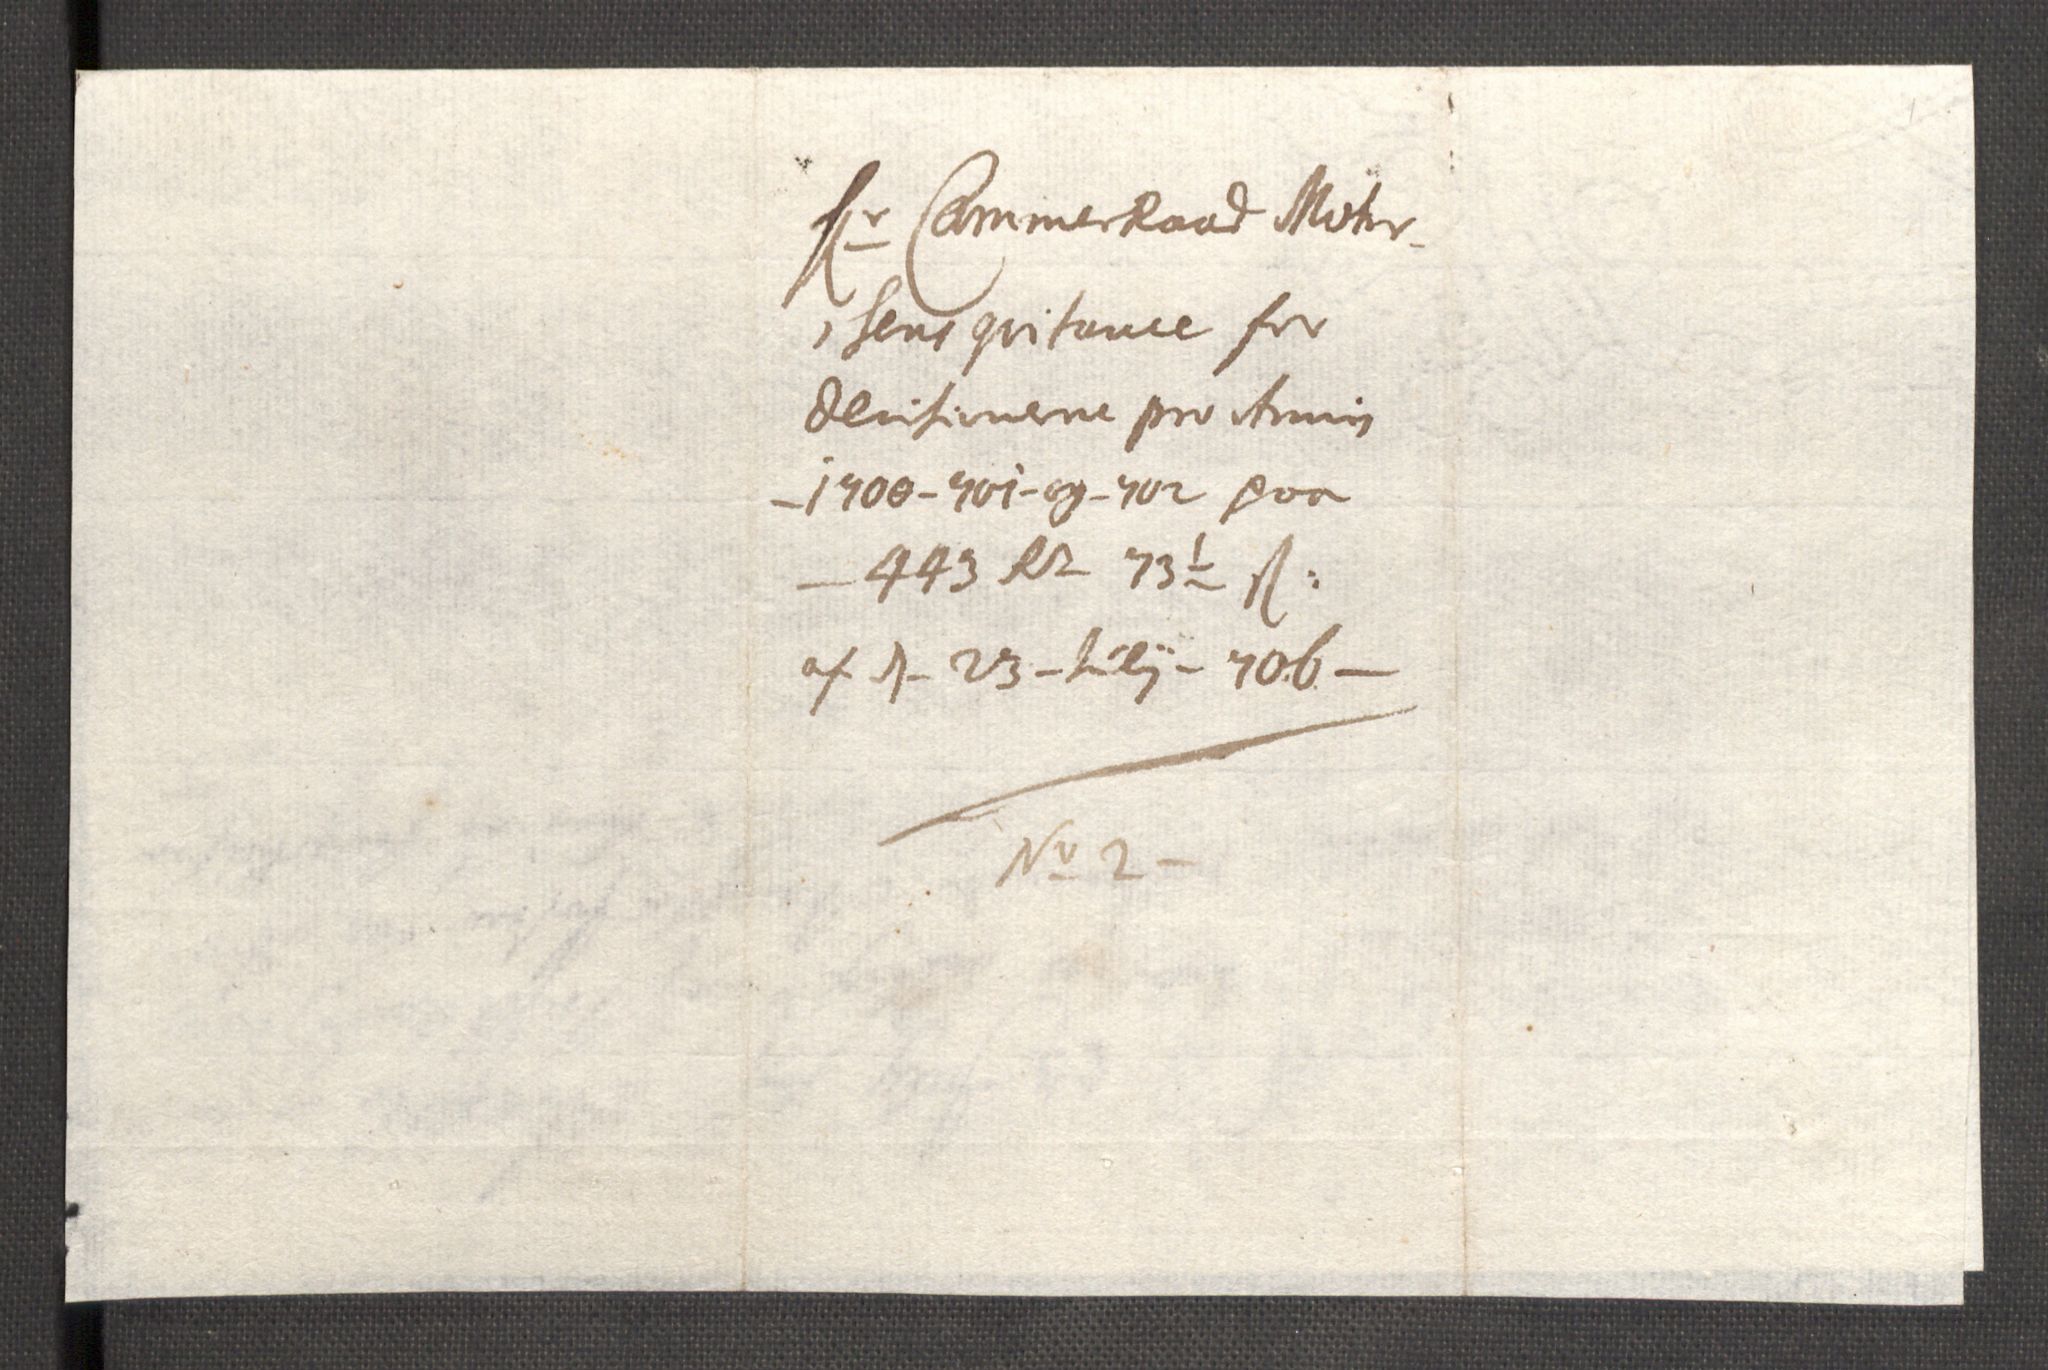 Hr CammerRaad Mohr-
sens qvitance for
decisionerne pro Annis
-1700-701-og-702 paa
- 443 Rd 73½ ß:
af d- 23-Julij- 706-
No 2-